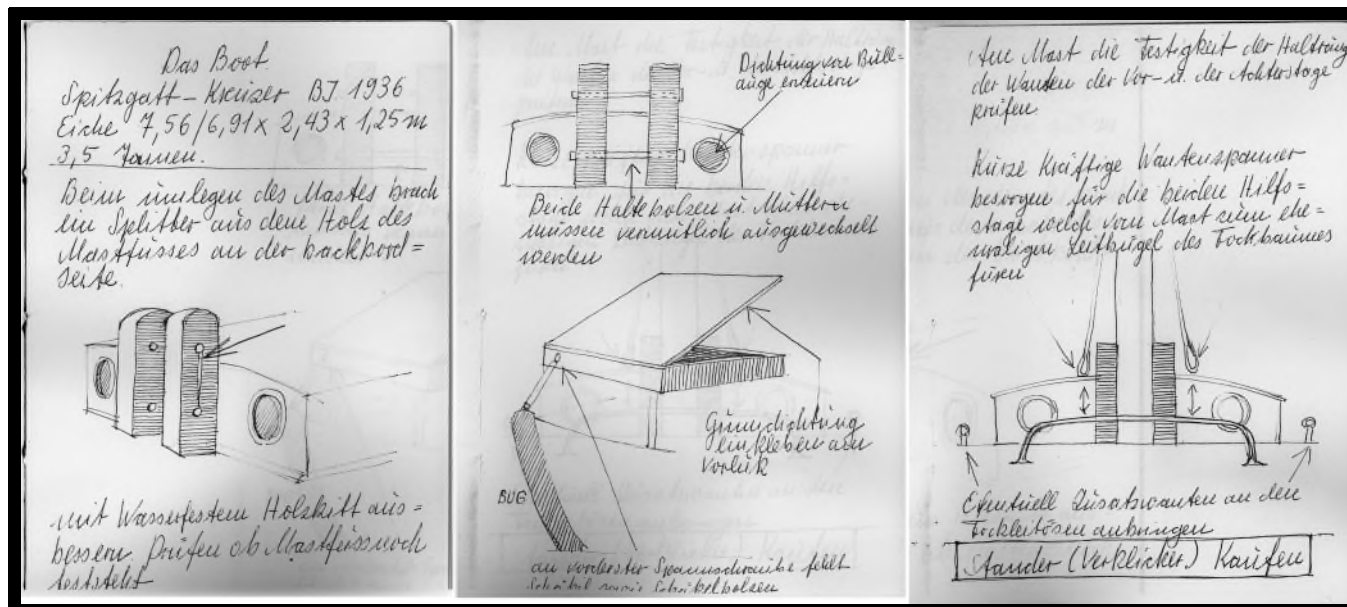 Das Boot.
Spitzgatt-Kreuzer BJ. 1936
Eiche 7,56/6,91 x 2,43 x 1,25 m
3,5 Tonnen.
Beim umlegen des Mastes brach
ein Splitter aus dem Holz des
Mastfusses an der backbord=
seite.
mit Wasserfestem Holzkitt aus=
bessern. Prüfen ob Mastfuss noch
feststeht
Dichtung von Bull=
auge erneuern
Beide Haltebolzen u. Muttern
müssen vermutlich ausgewechselt
werden
Gummidichtung
einkleben am
Vorluk
BUG
an vorderster Spannschraube fehlt
Schäkel sowie Schäkelbolzen
Am Mast die Festigkeit der Halterung
der Wanten der Vor- u. der Achterstage
prüfen.
Kurze kräftige Wantenspanner
besorgen für die beiden Hilfs=
stage welch vom Mast zum ehe=
maligen Leitbügel des Fockbaumes
füren
Eventuell Zusatzwanten an den
Fockleitösen anbringen
Stander (Verklicker) Kaufen